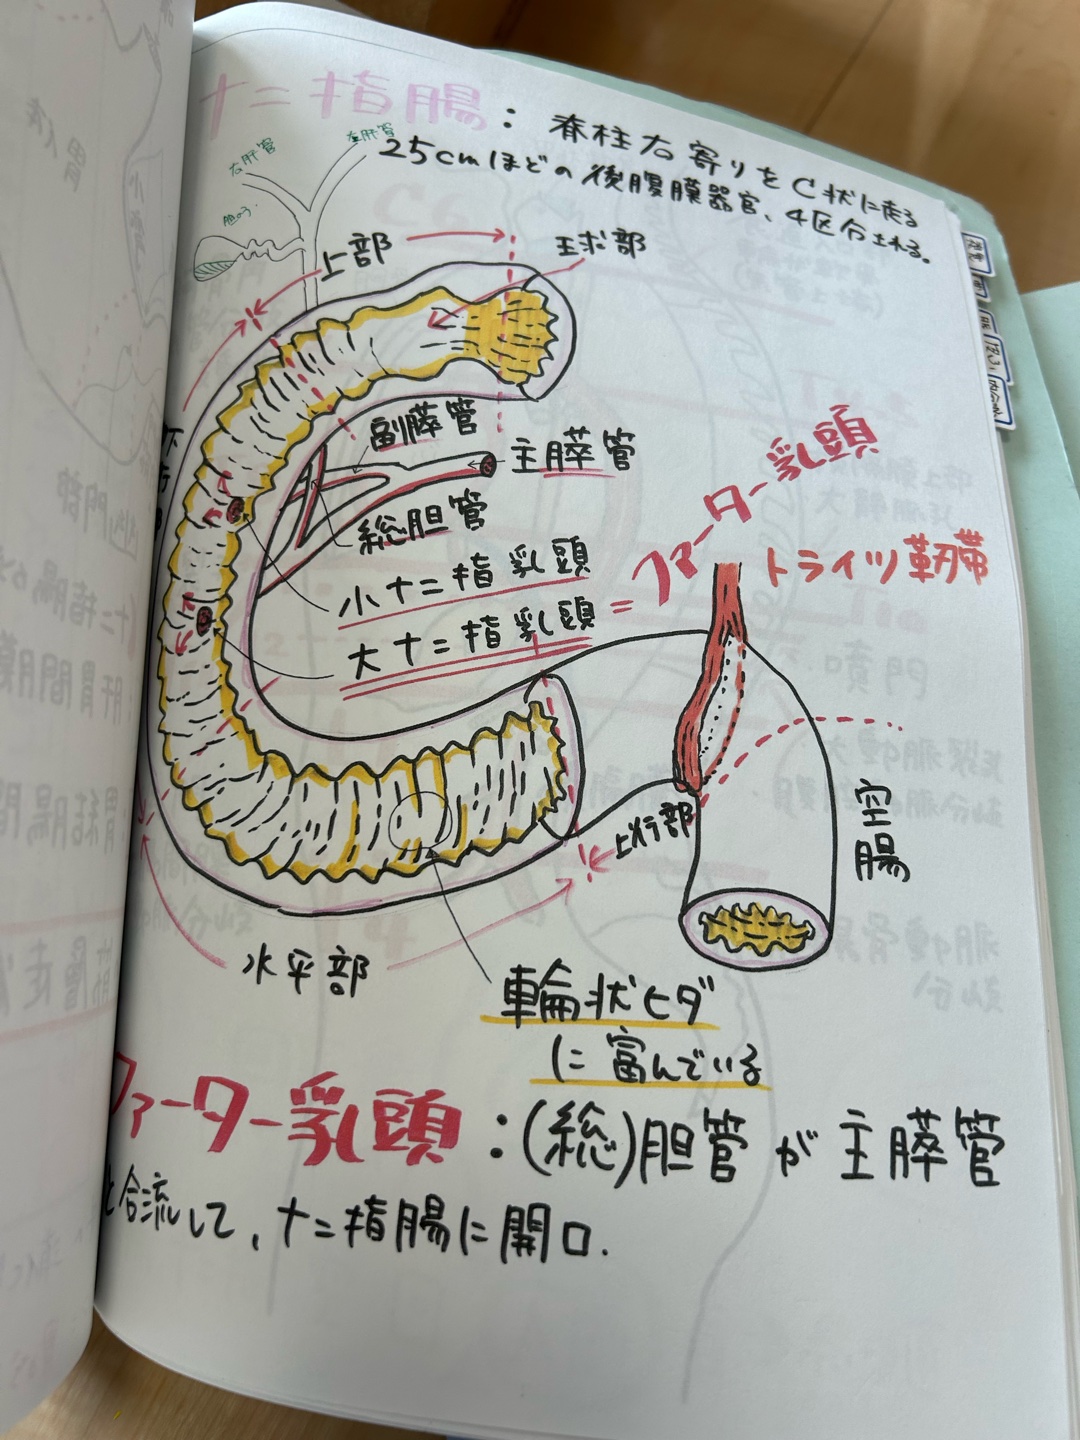 十二指腸：脊柱右寄りをC状に走る
25cmほどの後腹膜器官、4区分される。
右肝管
左肝管
胆のう
上部
球部
副膵管
主膵管
総胆管
小十二指乳頭
大十二指乳頭＝ファーター乳頭
トライツ靭帯
上行部
空腸
水平部
輪状ヒダ
に富んでいる
ファーター乳頭：(総)胆管が主膵管
と合流して、十二指腸に開口.